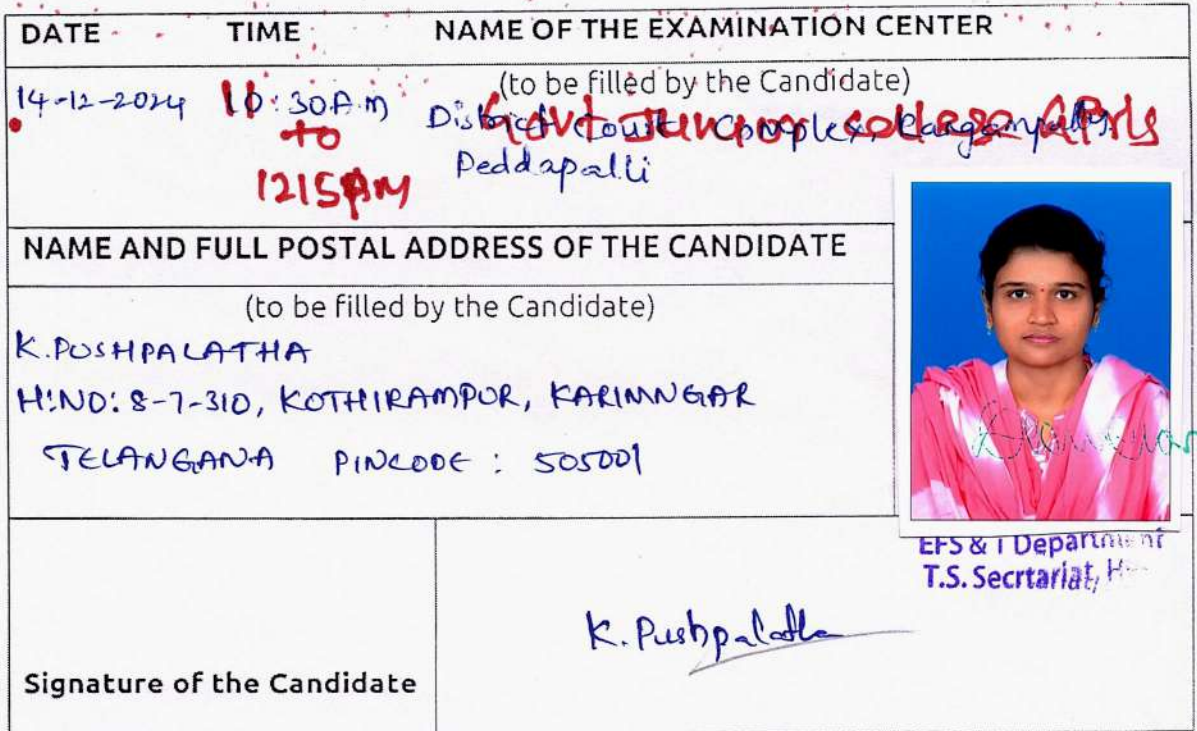 DATE TIME NAME OF THE EXAMINATION CENTER
(to be filled by the Candidate)
14-12-2024 10:30A.M District Court Complex, Rangampally,
to Govt Junior college Girls
Peddapalli
1215PM
NAME AND FULL POSTAL ADDRESS OF THE CANDIDATE
(to be filled by the Candidate)
K.PUSHPALATHA
H.NO: 8-7-310, KOTHIRAMPUR, KARIMNGAR
TELANGANA PINCODE : 505001
EFS & I Department
T.S. Secrtariat,
K. Pushpalatha
Signature of the Candidate